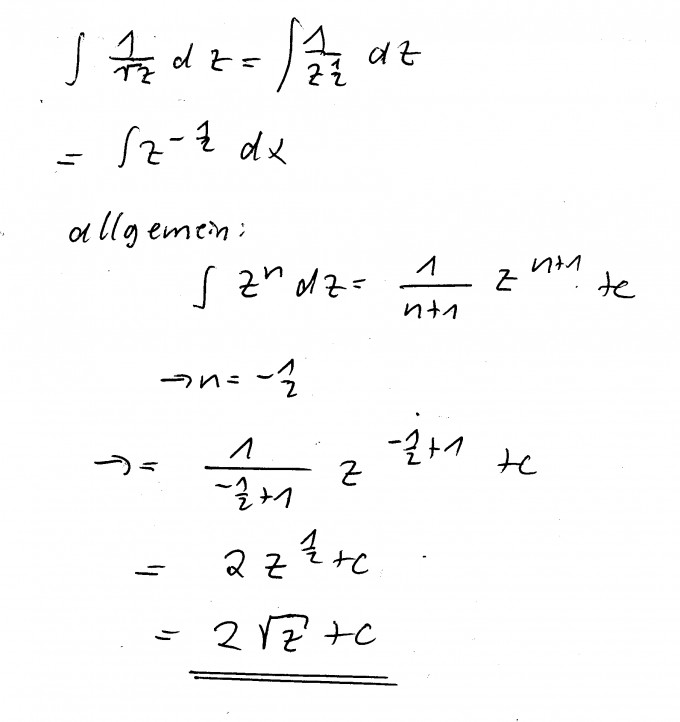 ∫ 1/√z dz = ∫ 1/z^(1/2) dz
= ∫ z^(-1/2) dx
allgemein:
∫ z^n dz = 1/(n+1) z^(n+1) + c
→ n = -1/2
→ = 1/(-1/2+1) z^(-1/2+1) + c
= 2 z^(1/2) + c
= 2 √z + c